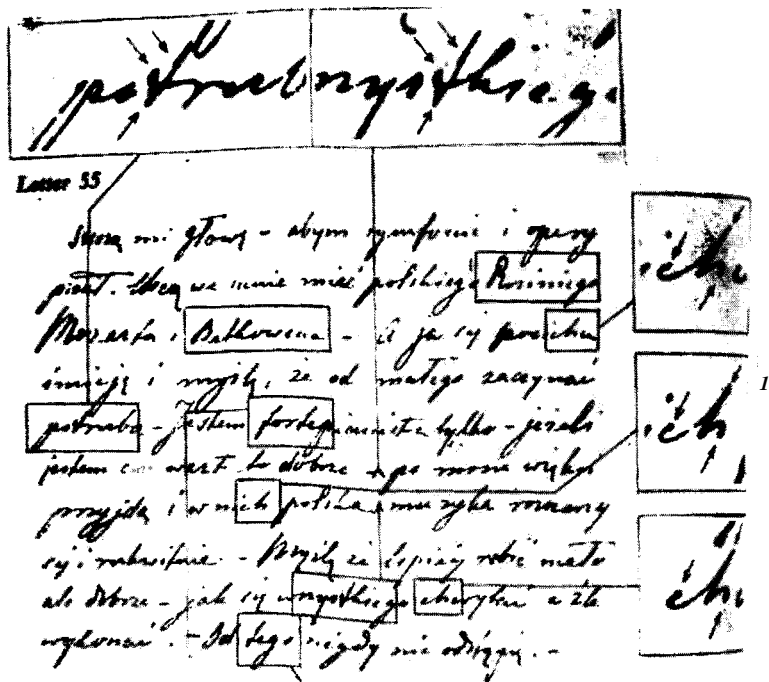 potrzeb wszystkiego
Letter 55
Suszą mi głowę - abym symfonie i opery
pisał. Chcą we mnie mieć polskiego Rosiniego
ich
Mozarta i Bethowena - A ja się pocichu
śmieję i myślę, że od małego zaczynać
ich
1
potrzeba - Jestem fortepianista tylko - jeżeli
jestem co wart to dobrze
przyjdą i w nich polska muzyka
się i - Myślę że lepiej robić mało
ich
ale dobrze - jak się wszystkiego chwytać a źle
wykonać. - Od tego nigdy nie odstąpię. -